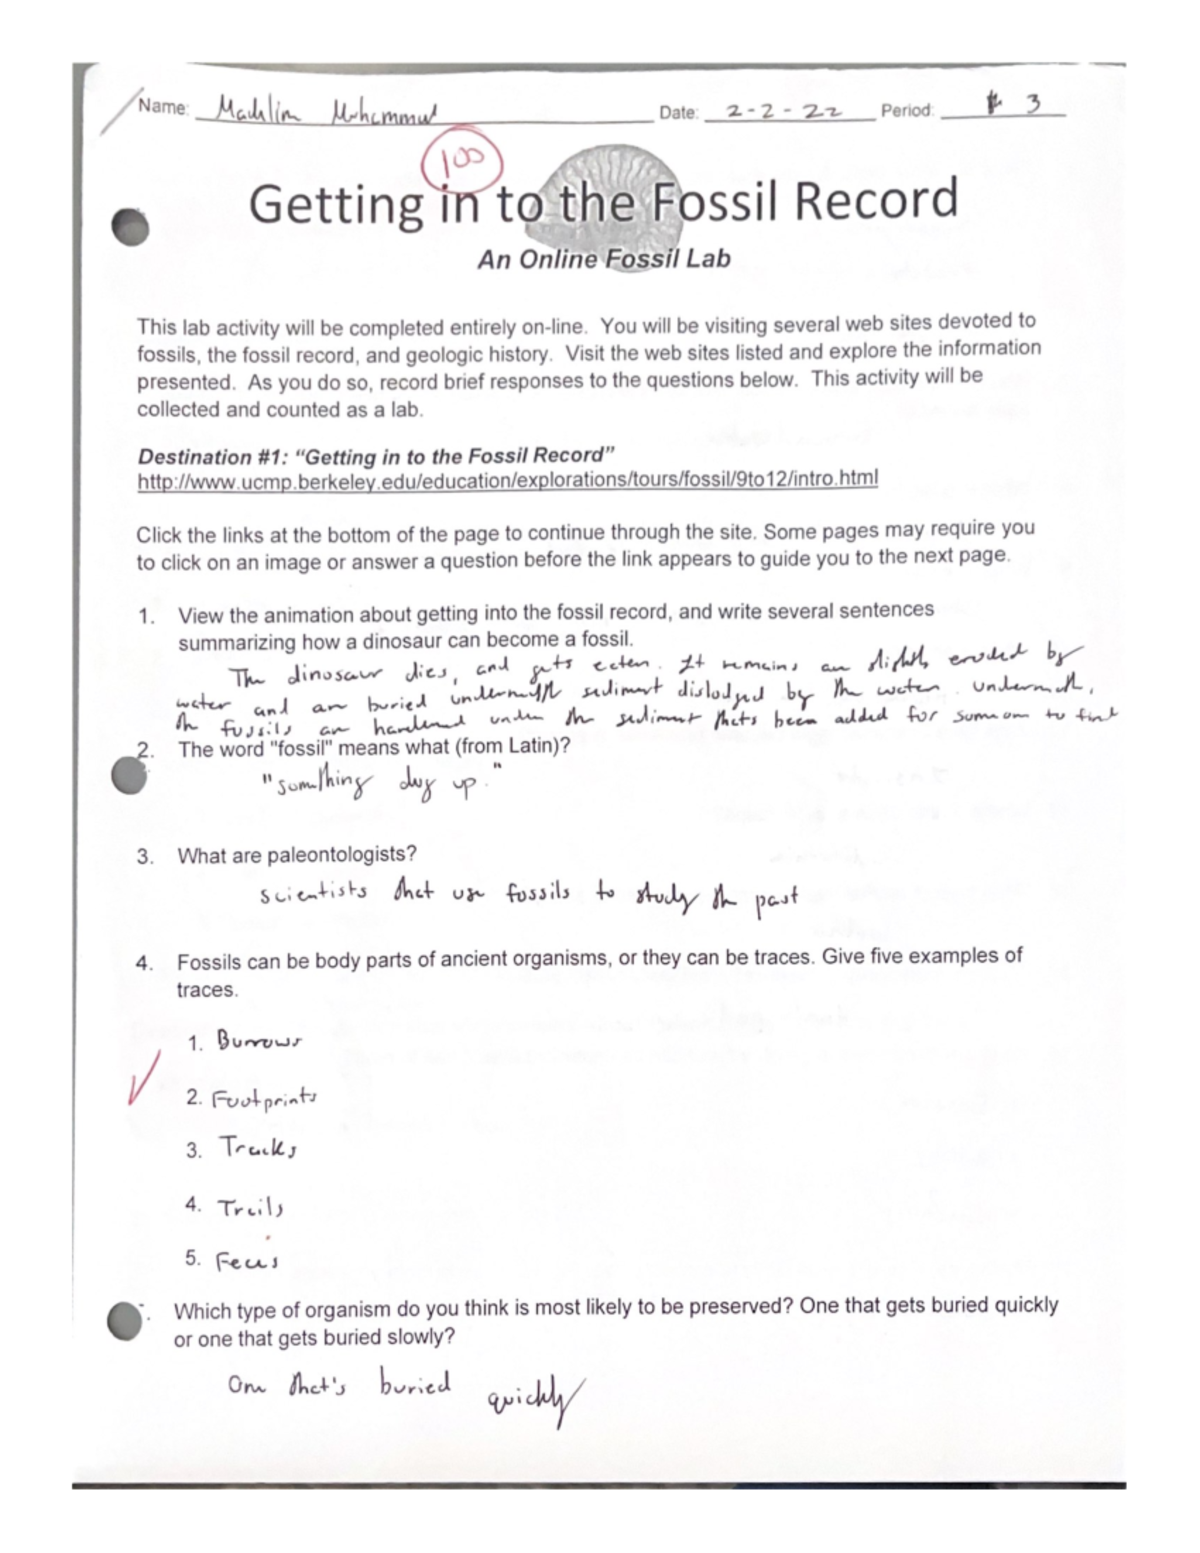 Name: Madilin Muhammud Date: 2-2-22 Period: 3
100
Getting in to the Fossil Record
An Online Fossil Lab
This lab activity will be completed entirely on-line. You will be visiting several web sites devoted to
fossils, the fossil record, and geologic history. Visit the web sites listed and explore the information
presented. As you do so, record brief responses to the questions below. This activity will be
collected and counted as a lab.
Destination #1: “Getting in to the Fossil Record”
http://www.ucmp.berkeley.edu/education/explorations/tours/fossil/9to12/intro.html
Click the links at the bottom of the page to continue through the site. Some pages may require you
to click on an image or answer a question before the link appears to guide you to the next page.
1. View the animation about getting into the fossil record, and write several sentences
summarizing how a dinosaur can become a fossil.
The dinosaur dies, and gets eaten. It remains are slightly eroded by
water and are buried underneath sediment dislodged by the water. underneath,
the fossils are hardened under the sediment thats been added for someone to find
2. The word "fossil" means what (from Latin)?
"something dug up."
3. What are paleontologists?
Scientists that use fossils to study the past
4. Fossils can be body parts of ancient organisms, or they can be traces. Give five examples of
traces.
1. Burrows
2. Footprints
3. Tracks
4. Trails
5. Feces
Which type of organism do you think is most likely to be preserved? One that gets buried quickly
or one that gets buried slowly?
One that's buried quickly